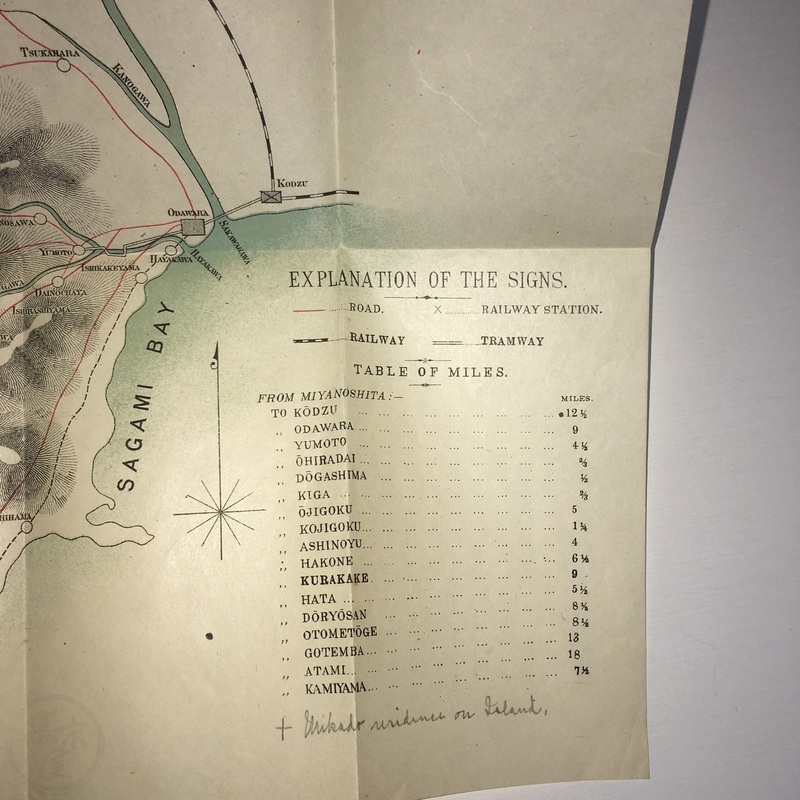 TSUKAHARA
KANOGAWA
KODZU
ODAWARA
SAKAWAGAWA
NOSAWA
YUMOTO
HAYAKAWA
HAYAKAWA
ISHIKAKEYAMA
GAWA
DAINOCHAYA
ISHIBASHIYAMA
WA
SAGAMI BAY
HIHAMA
EXPLANATION OF THE SIGNS.
ROAD. X RAILWAY STATION.
RAILWAY TRAMWAY
TABLE OF MILES.
FROM MIYANOSHITA:— MILES.
TO KŌDZU ... 12 ½
,, ODAWARA ... 9
,, YUMOTO ... 4 ½
,, ŌHIRADAI ... ⅔
,, DŌGASHIMA ... ½
,, KIGA ... ⅔
,, ŌJIGOKU ... 5
,, KOJIGOKU ... 1 ¼
,, ASHINOYU ... 4
,, HAKONE ... 6
,, KURAKAKE ... 9
,, HATA ... 5 ½
,, DŌRYŌSAN ... 8
,, OTOMETŌGE ... 8
,, GOTEMBA ... 13
,, ATAMI ... 18
,, KAMIYAMA ... 7 ½
+ Mikado residence on Island.